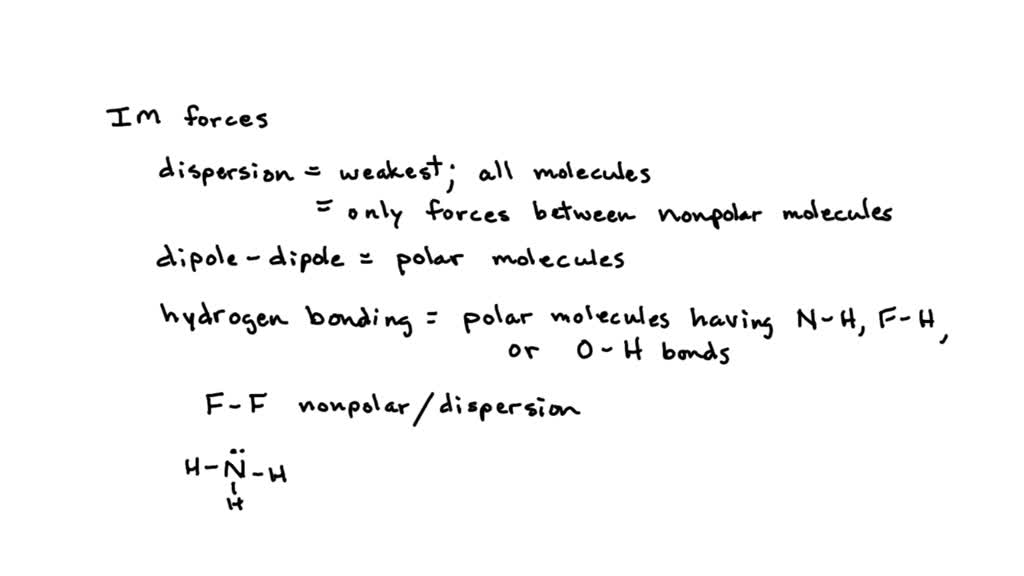 IM forces
dispersion = weakest; all molecules
= only forces between nonpolar molecules
dipole-dipole = polar molecules
hydrogen bonding = polar molecules having N-H, F-H,
or O-H bonds
F-F nonpolar/dispersion
H-N̈-H
H